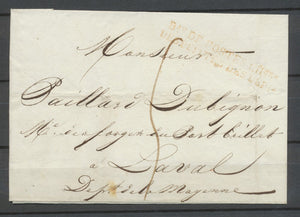 Monsieur
Paillard Dubignon
Me. des forges du Port Brillet
à Laval
Dept. de la Mayenne